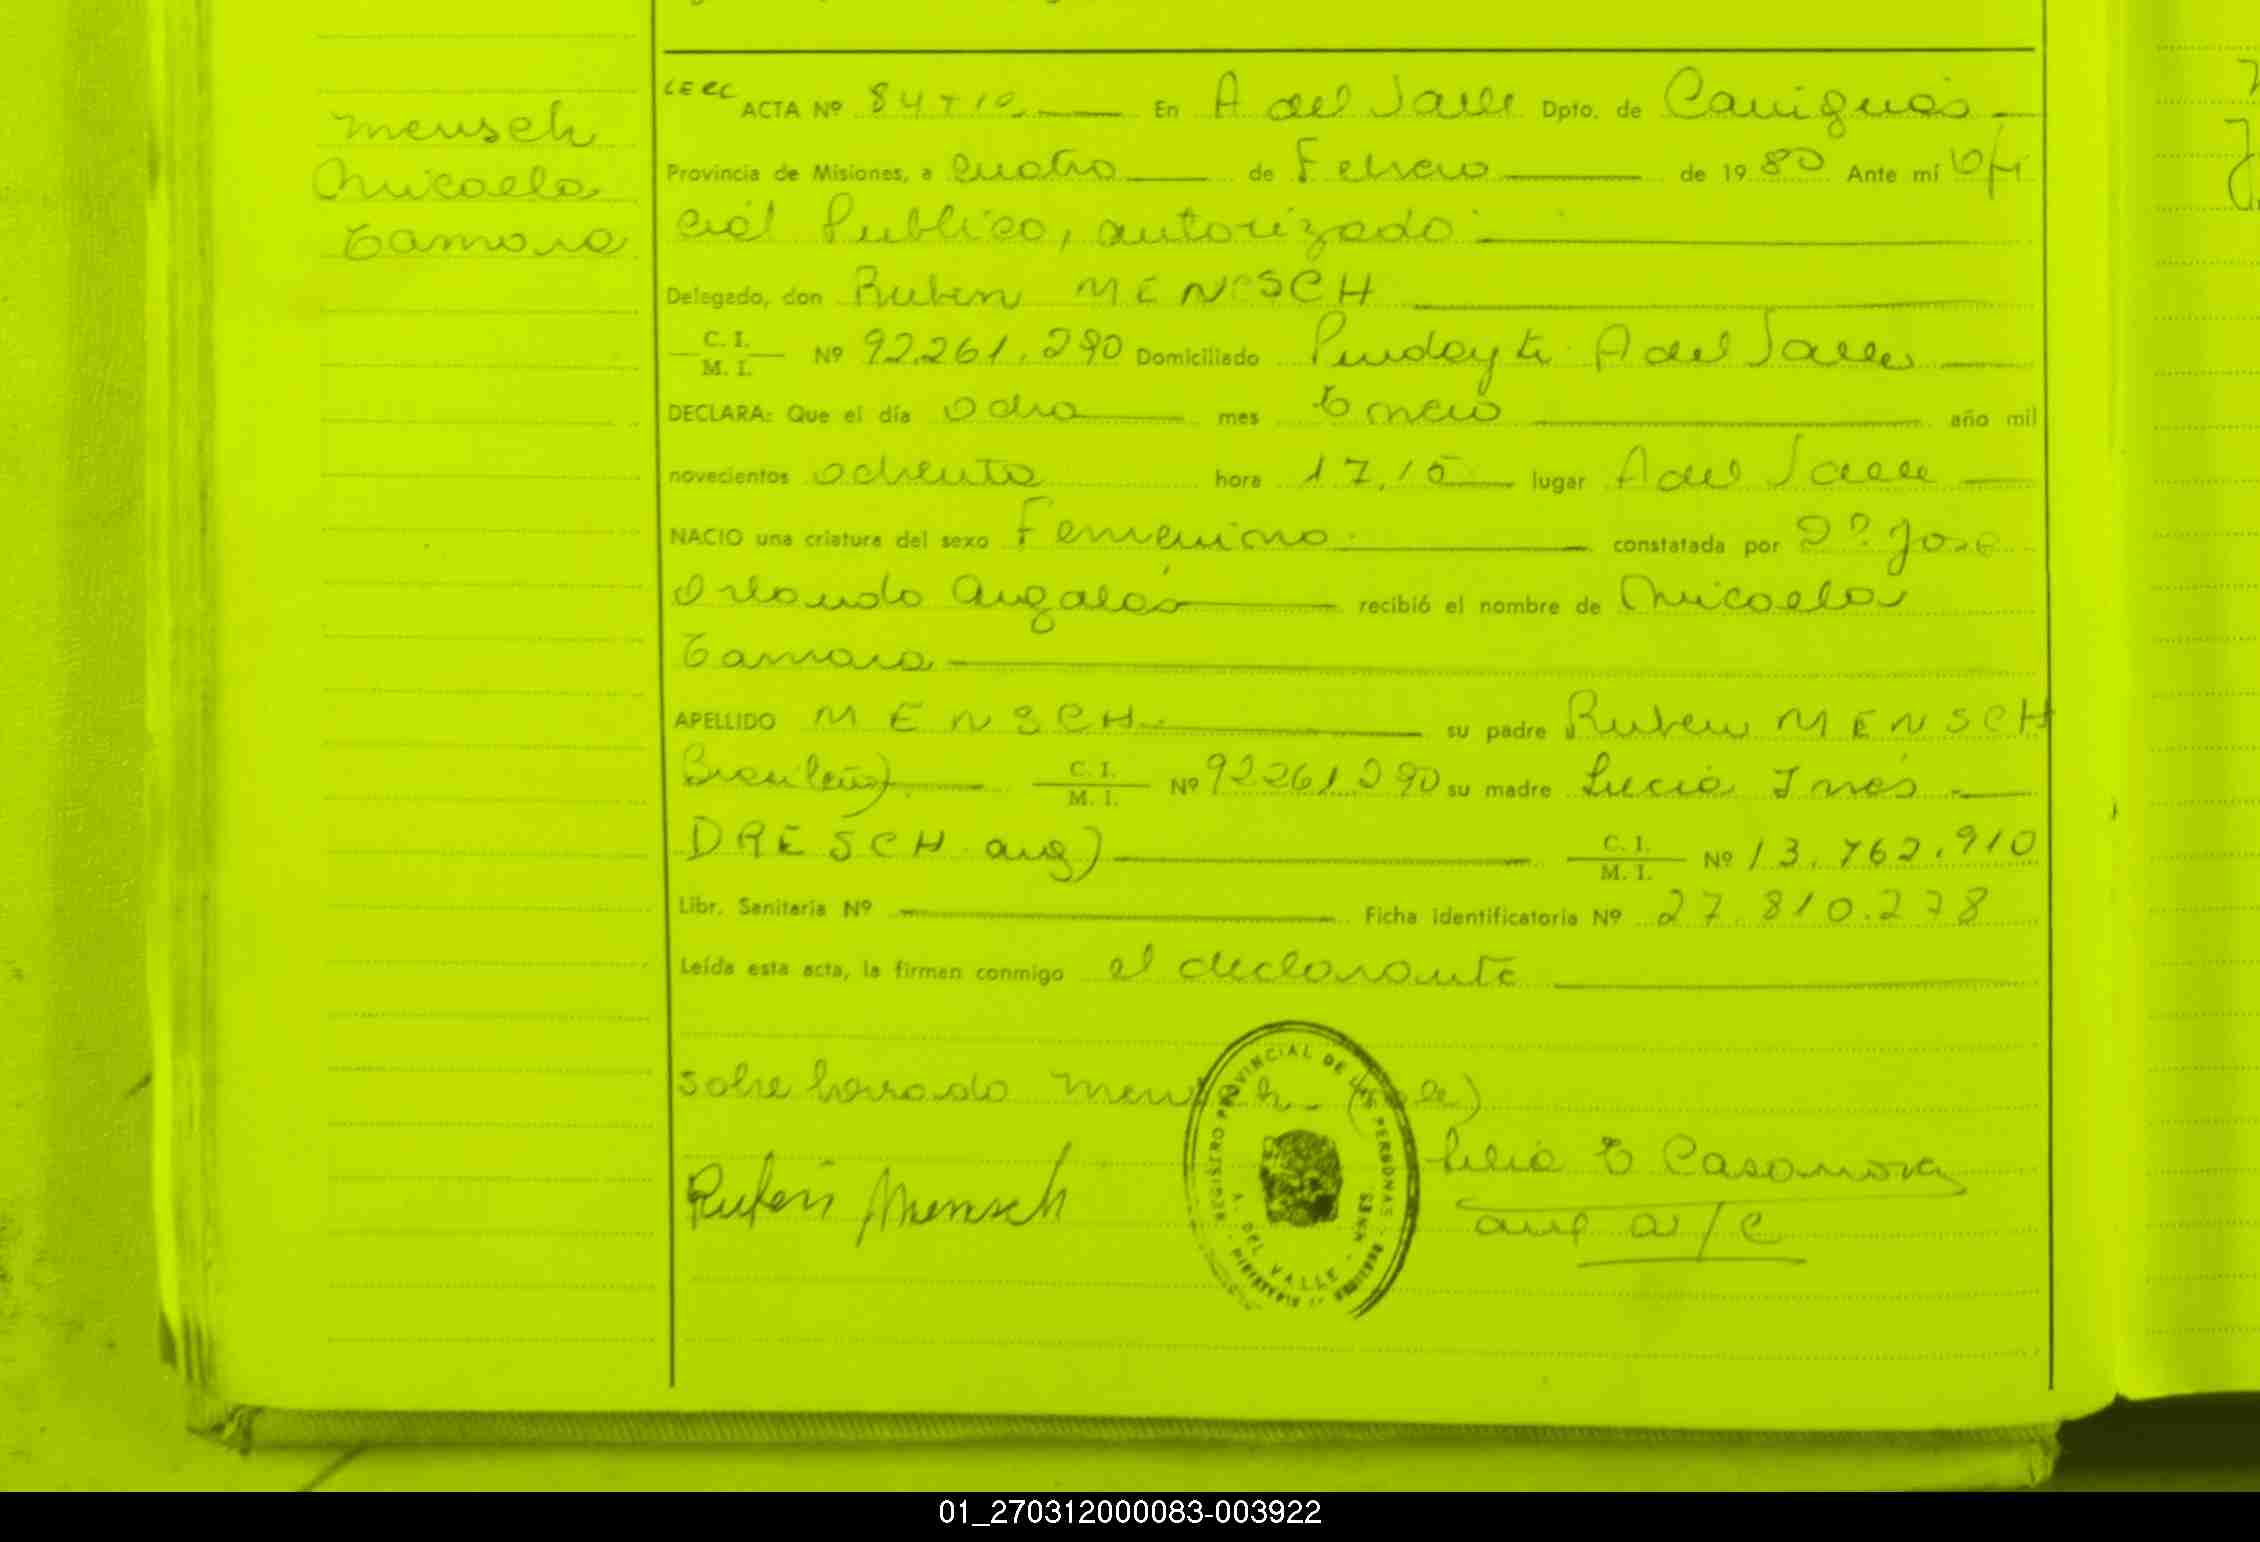 Mensch
Micaela
Tamara
ACTA Nº 84 En A del Valle Dpto. de Cainguás
Provincia de Misiones, a cuatro de Febrero de 1980 Ante mí Ofi
cial Publico, autorizado
Delegado, don Ruben MENSCH
C. I.
M. I. Nº 92.261.290 Domiciliado Pindayti A del Valle
DECLARA: Que el día ocho mes Enero año mil
novecientos ochenta hora 17,15 lugar A del Valle
NACIO una criatura del sexo Femenino constatada por Dº Jose
Orlando recibió el nombre de Micaela
Tamara
APELLIDO MENSCH su padre Ruben MENSCH
Brasileño) C. I.
M. I. Nº 92261290 su madre Lucia Inés
DRESCH arg) C. I.
M. I. Nº 13.762.910
Libr. Sanitaria Nº Ficha identificatoria Nº 27.810.278
Leída esta acta, la firman conmigo el declarante
sobre borrado Mensch (vale)
Ruben Mensch
REGISTRO PROVINCIAL DE LAS PERSONAS
A. DEL VALLE - MNES.
E Casanova
a/c
01_270312000083-003922